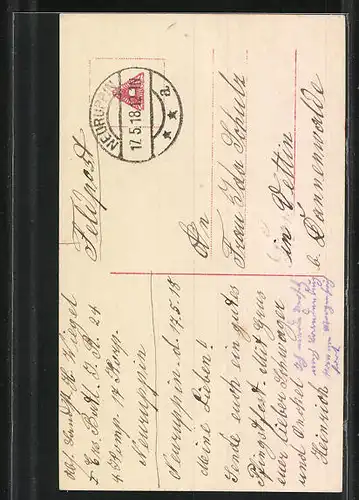 NEURUPPIN
17.5.18
* * a.
Feldpost
An
Frau Ida Schulz
in Dettin
b. Dannenwalde
Abs. Landst. H. Wiegel
I. Ers. Batl. I. R. 24
4. Komp. 4. Korp.
Neuruppin
Neuruppin d. 17.5.18
Meine Lieben!
Sende euch ein gutes
Pfingstfest. Mit Grus
euer lieber Schwager
und Onkel
Heinrich